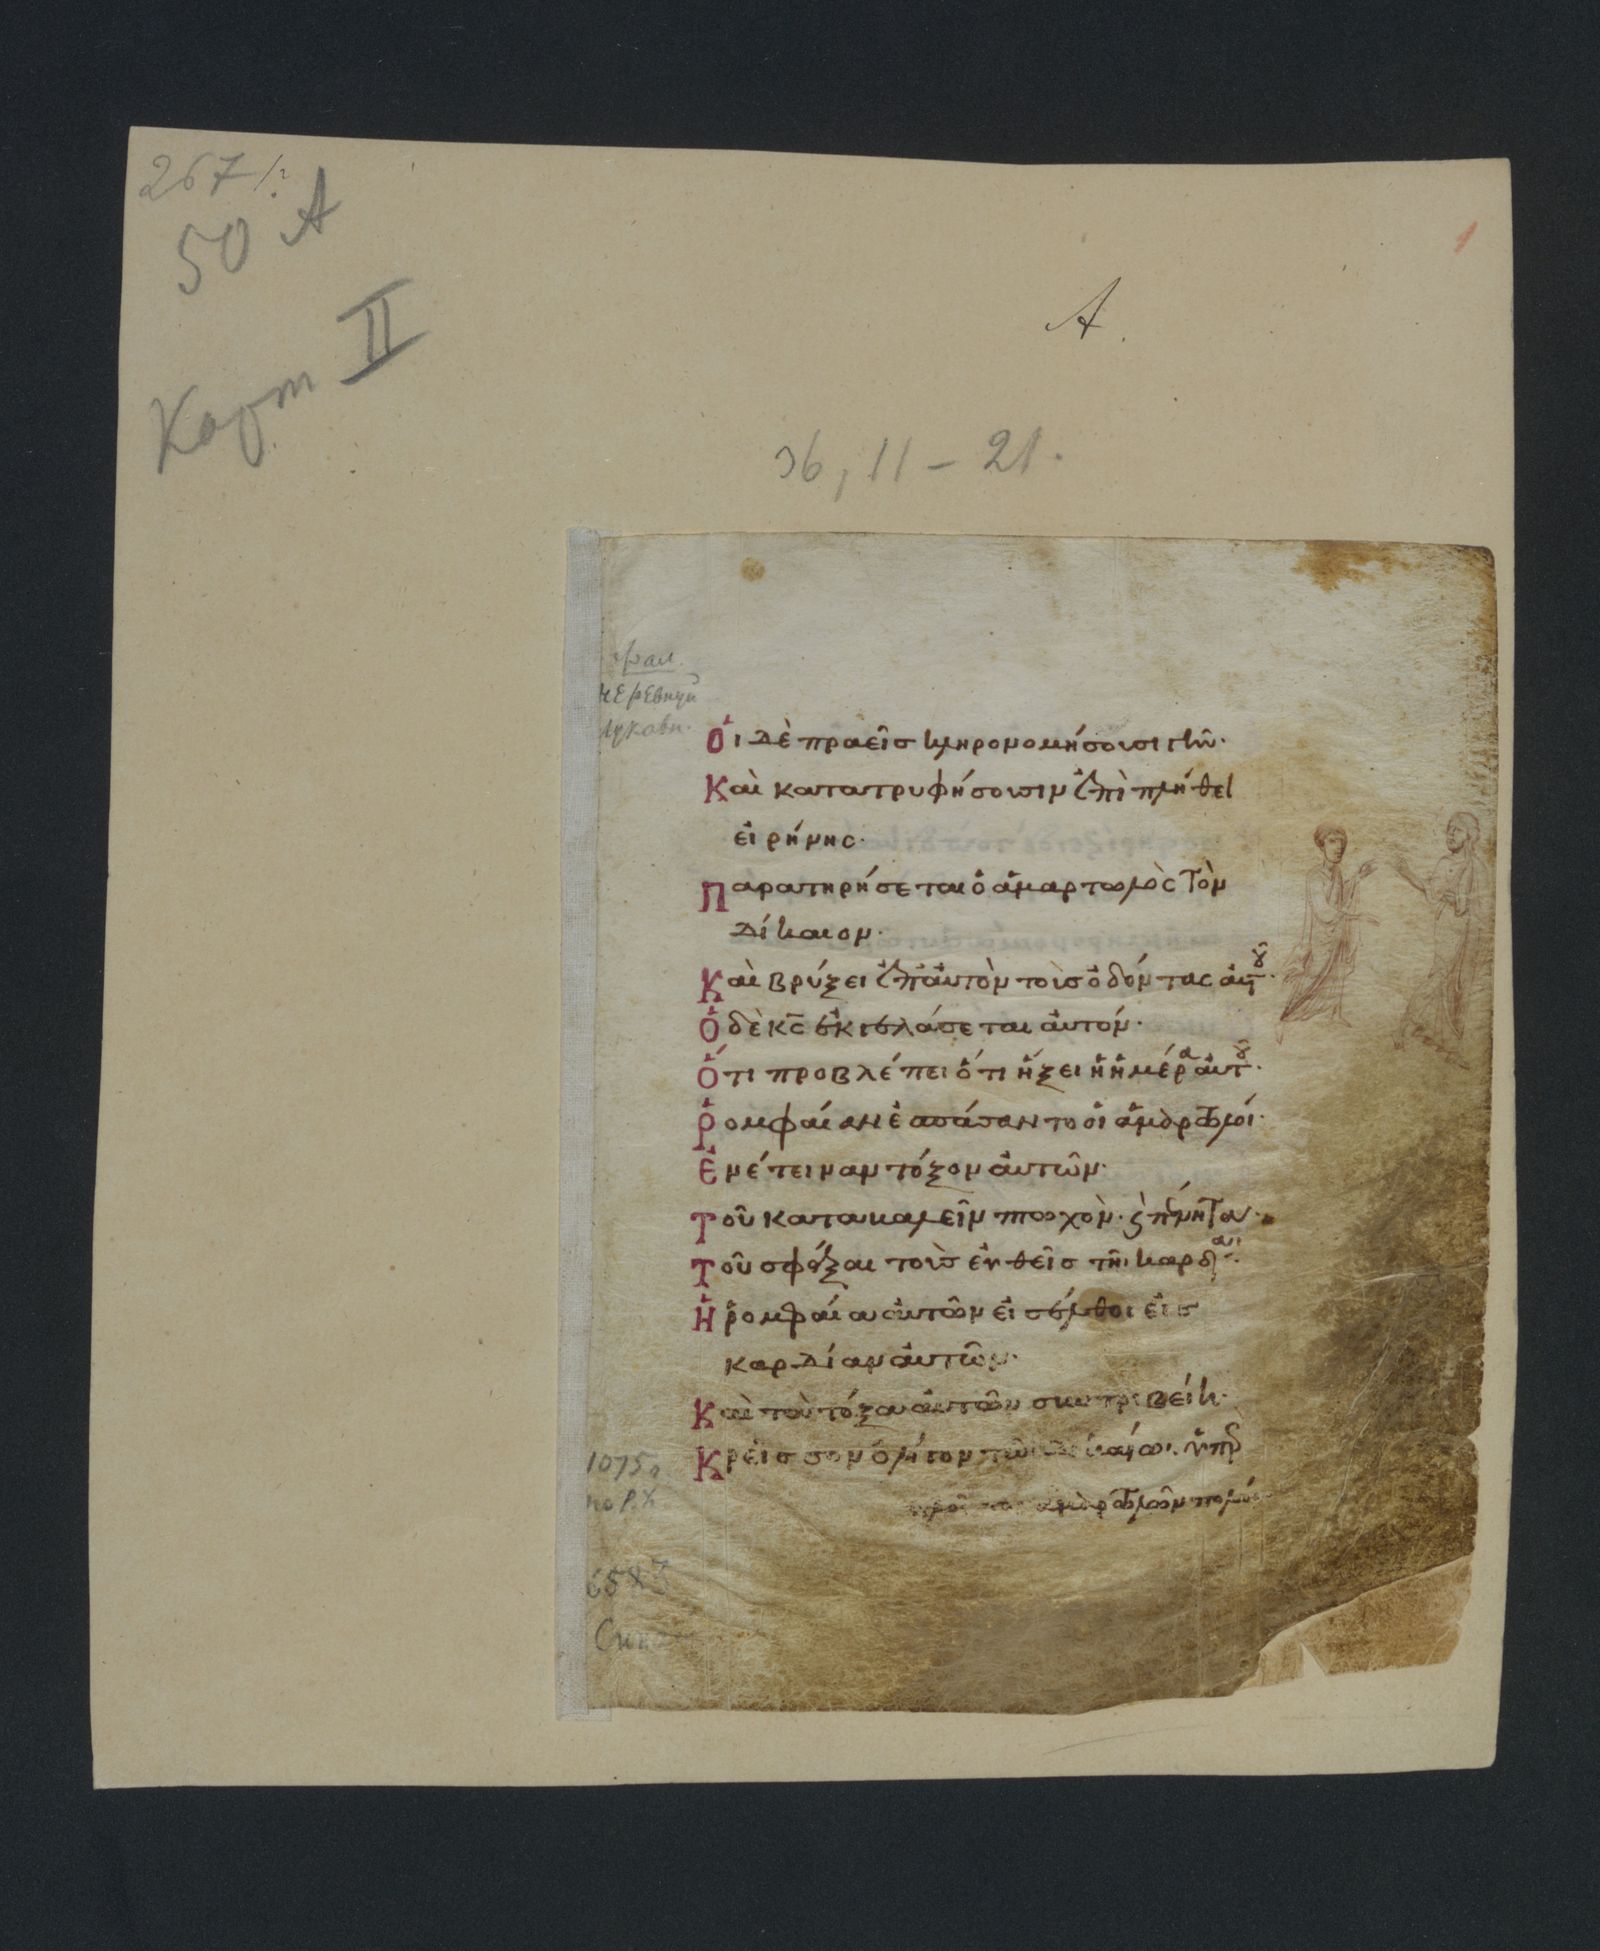 267
50 A
Карт II
A.
36, 11 – 21.
1
Οἱ δὲ πραεῖσ κληρονομήσουσι γῆν·
Καὶ κατατρυφήσουσιν ἐπὶ πλήθει
εἰρήνης·
Παρατηρήσεται ὁ ἁμαρτωλὸς τὸν
δίκαιον·
Καὶ βρύξει ἐπ' αὐτὸν τοὺσ ὀδόντας αὐτοῦ·
Ὁ δὲ κ̅ς̅ ἐκγελάσεται αὐτόν·
Ὅτι προβλέπει ὅτι ἥξει ἡ ἡμέρα αὐτοῦ·
Ῥομφαίαν ἐσπάσαντο οἱ ἁμαρτωλοί·
Ἐνέτειναν τόξον αὐτῶν·
Τοῦ καταβαλεῖν πτωχὸν· καὶ πένητα·
Τοῦ σφάξαι τοὺσ εὐθεῖσ τῆι καρδίαι·
Ἡ ῥομφαία αὐτῶν εἰσέλθοι εἰσ
καρδίαν αὐτῶν·
Καὶ τὰ τόξα αὐτῶν συντριβείη·
Κρεῖσσον ὀλίγον τῶι δικαίωι ὑπὲρ
ἁμαρτωλῶν πολύν
1075
по Р.Х
6583